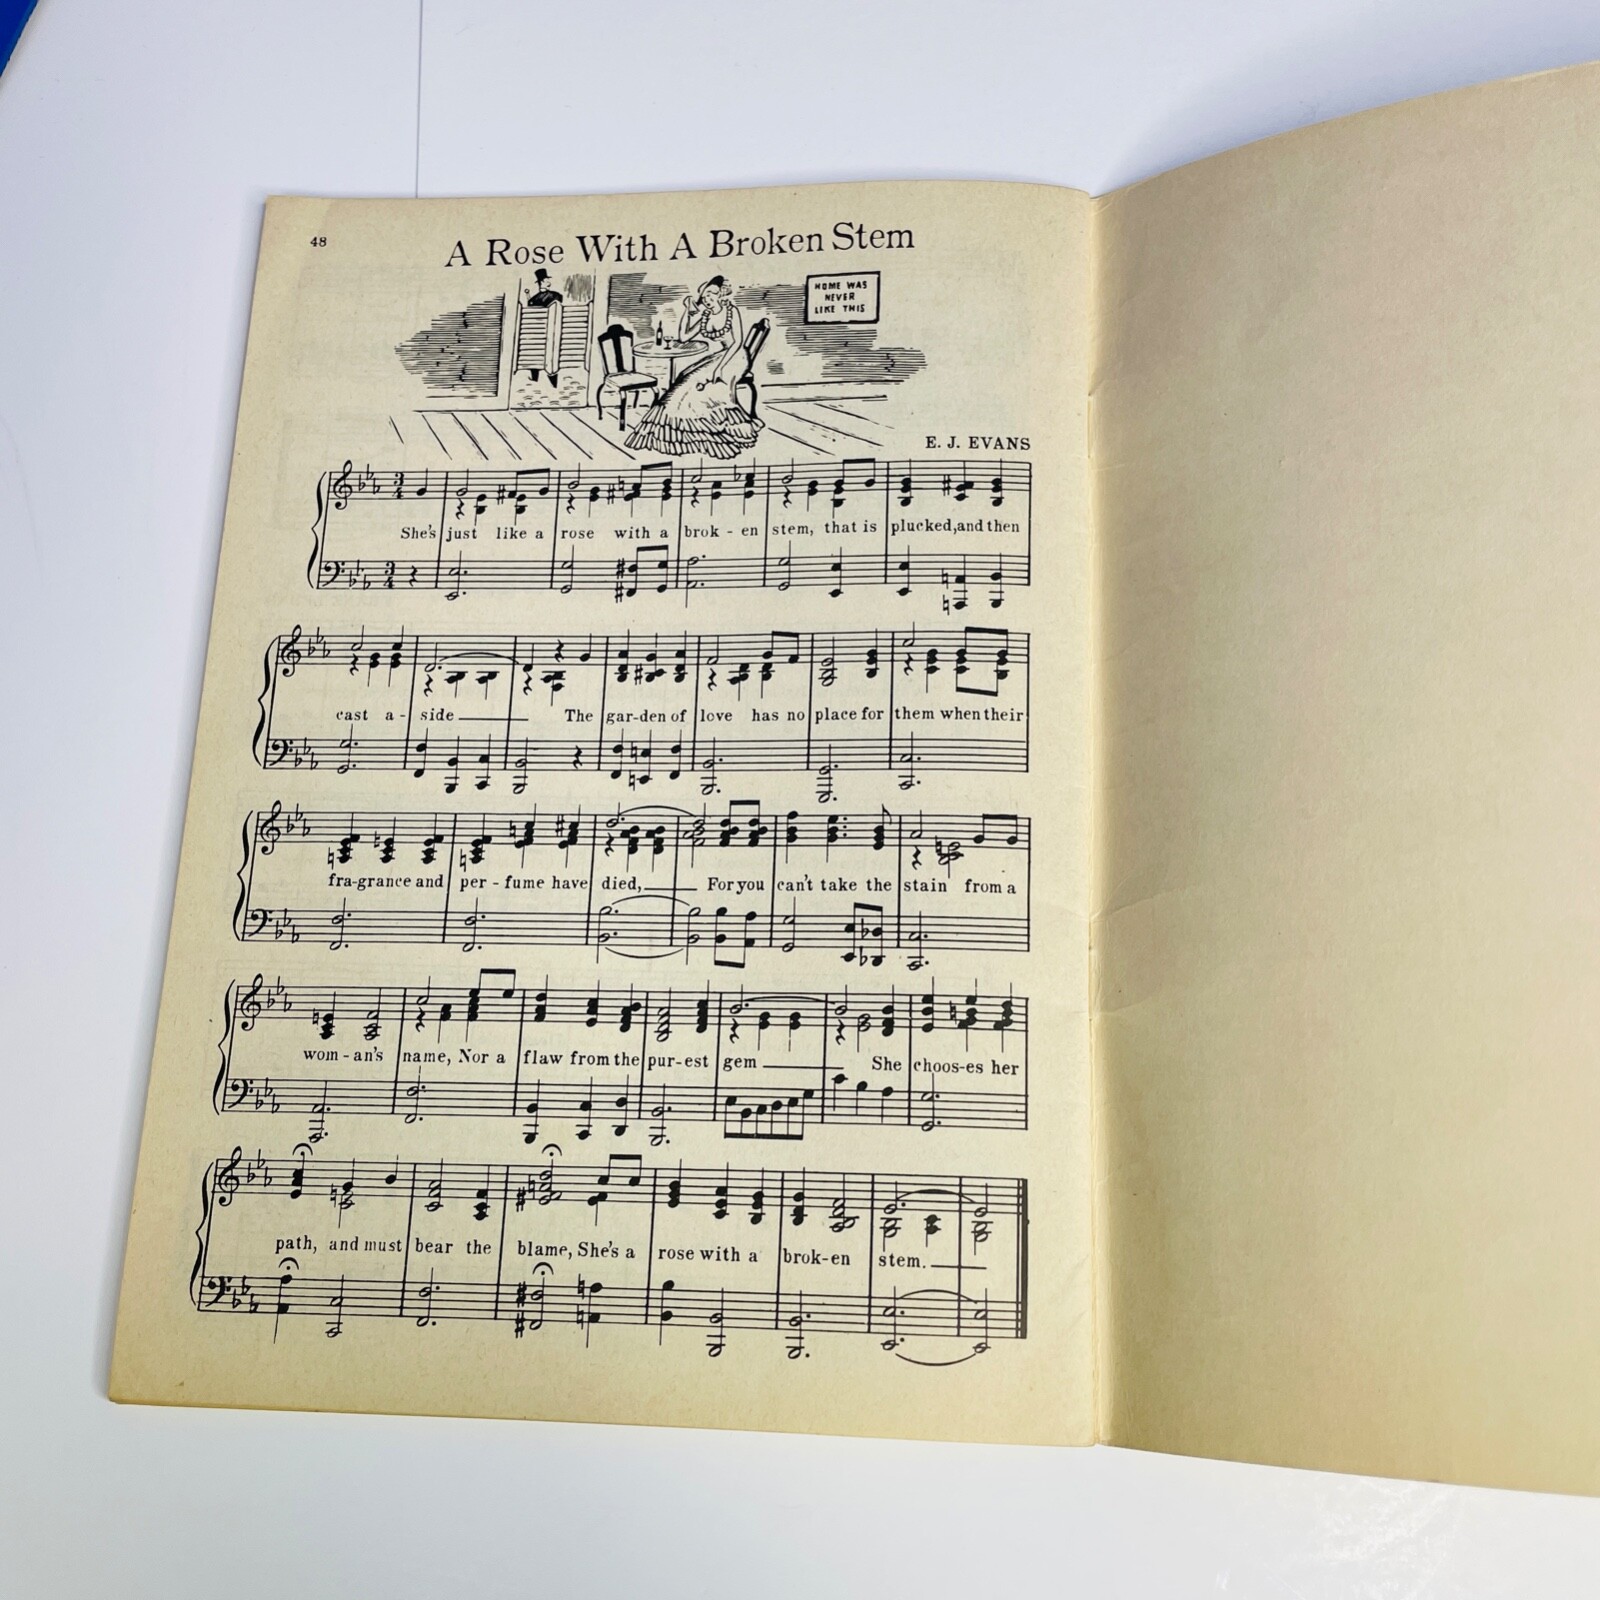 48
A Rose With A Broken Stem
HOME WAS
NEVER
LIKE THIS
E. J. EVANS
She's just like a rose with a brok - en stem, that is plucked, and then
cast a - side The gar-den of love has no place for them when their
fra-grance and per - fume have died, For you can't take the stain from a
wom - an's name, Nor a flaw from the pur-est gem She choos-es her
path, and must bear the blame, She's a rose with a brok-en stem.